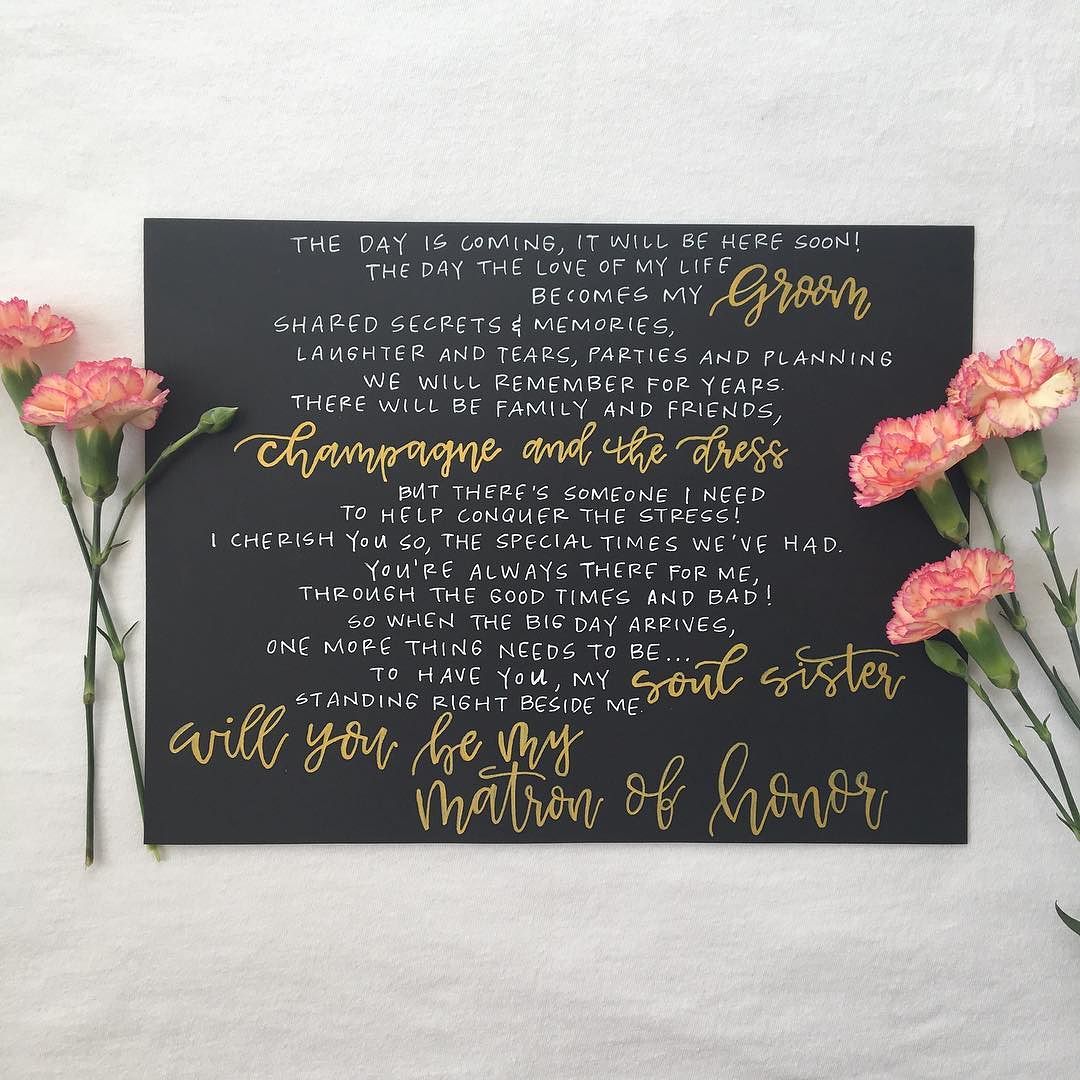 THE DAY IS COMING, IT WILL BE HERE SOON!
THE DAY THE LOVE OF MY LIFE
BECOMES MY Groom
SHARED SECRETS & MEMORIES,
LAUGHTER AND TEARS, PARTIES AND PLANNING
WE WILL REMEMBER FOR YEARS.
THERE WILL BE FAMILY AND FRIENDS,
champagne and the dress
BUT THERE'S SOMEONE I NEED
TO HELP CONQUER THE STRESS!
I CHERISH YOU SO, THE SPECIAL TIMES WE'VE HAD.
YOU'RE ALWAYS THERE FOR ME,
THROUGH THE GOOD TIMES AND BAD!
SO WHEN THE BIG DAY ARRIVES,
ONE MORE THING NEEDS TO BE...
TO HAVE YOU, MY soul sister
STANDING RIGHT BESIDE ME.
will you be my
matron of honor